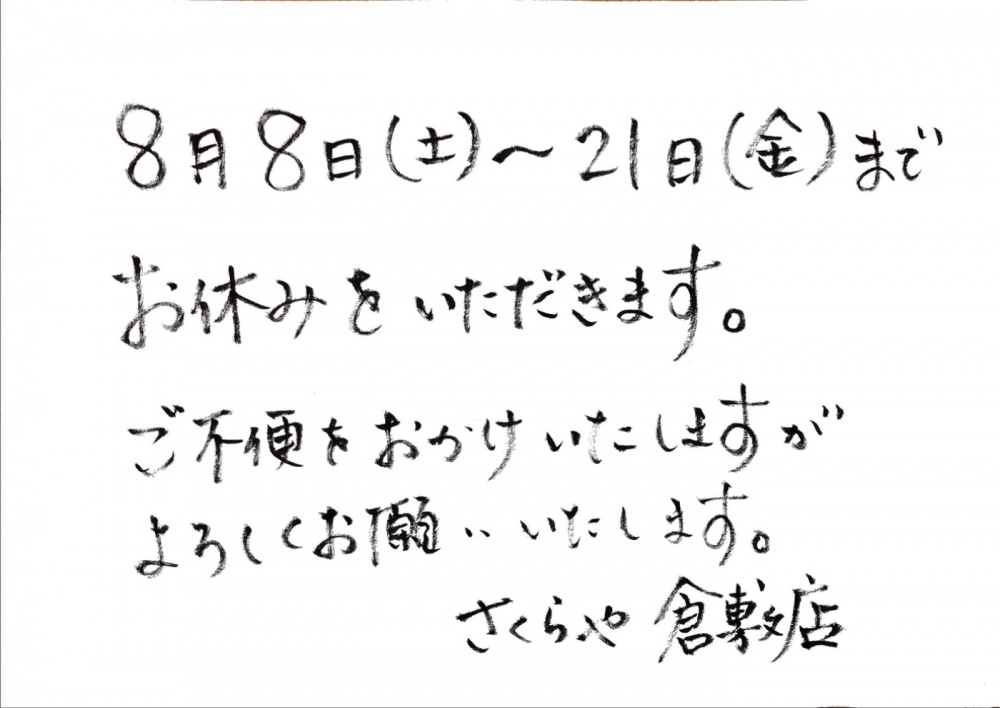 8月8日(土)～21日(金)まで
お休みをいただきます。
ご不便をおかけいたしますが
よろしくお願いいたします。
さくらや 倉敷店